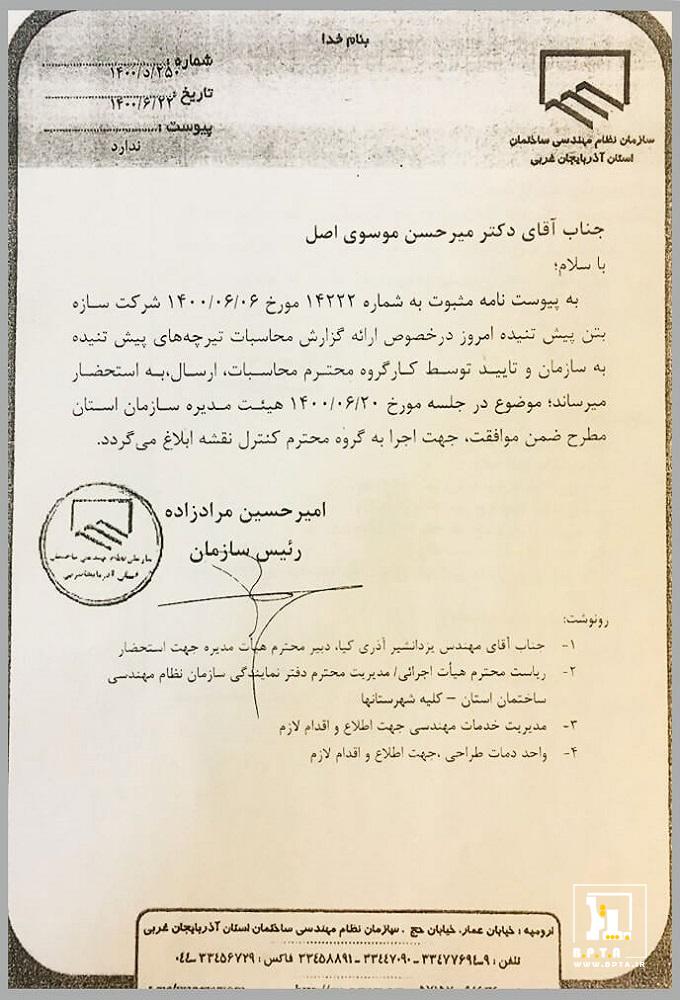 بنام خدا
شماره :
۱۴۰۰/د/۲۵۰
تاریخ :
۱۴۰۰/۶/۲۲
پیوست :
ندارد
سازمان نظام مهندسی ساختمان
استان آذربایجان غربی
جناب آقای دکتر میرحسن موسوی اصل
با سلام؛
به پیوست نامه مثبوت به شماره ۱۴۲۲۲ مورخ ۱۴۰۰/۰۶/۰۶ شرکت سازه
بتن پیش تنیده امروز درخصوص ارائه گزارش محاسبات تیرچه‌های پیش تنیده
به سازمان و تایید توسط کارگروه محترم محاسبات، ارسال،به استحضار
میرساند؛ موضوع در جلسه مورخ ۱۴۰۰/۰۶/۲۰ هیئت مدیره سازمان استان
مطرح ضمن موافقت، جهت اجرا به گروه محترم کنترل نقشه ابلاغ می‌گردد.
امیرحسین مرادزاده
رئیس سازمان
سازمان نظام مهندسی ساختمان
استان آذربایجان غربی
رونوشت:
۱- جناب آقای مهندس یزدانشیر آذری کیا، دبیر محترم هیأت مدیره جهت استحضار
۲- ریاست محترم هیأت اجرائی/ مدیریت محترم دفتر نمایندگی سازمان نظام مهندسی
ساختمان استان – کلیه شهرستانها
۳- مدیریت خدمات مهندسی جهت اطلاع و اقدام لازم
۴- واحد دمات طراحی ،جهت اطلاع و اقدام لازم
ارومیه : خیابان عمار، خیابان حج ، سازمان نظام مهندسی ساختمان استان آذربایجان غربی
تلفن : ۹-۳۳۴۷۷۶۹۴ – ۳۳۴۴۷۰۹۰ – ۳۳۴۵۸۸۹۱ فاکس : ۳۳۴۵۶۷۲۹-۰۴۴
B.P.T.A
WWW.BPTA.IR